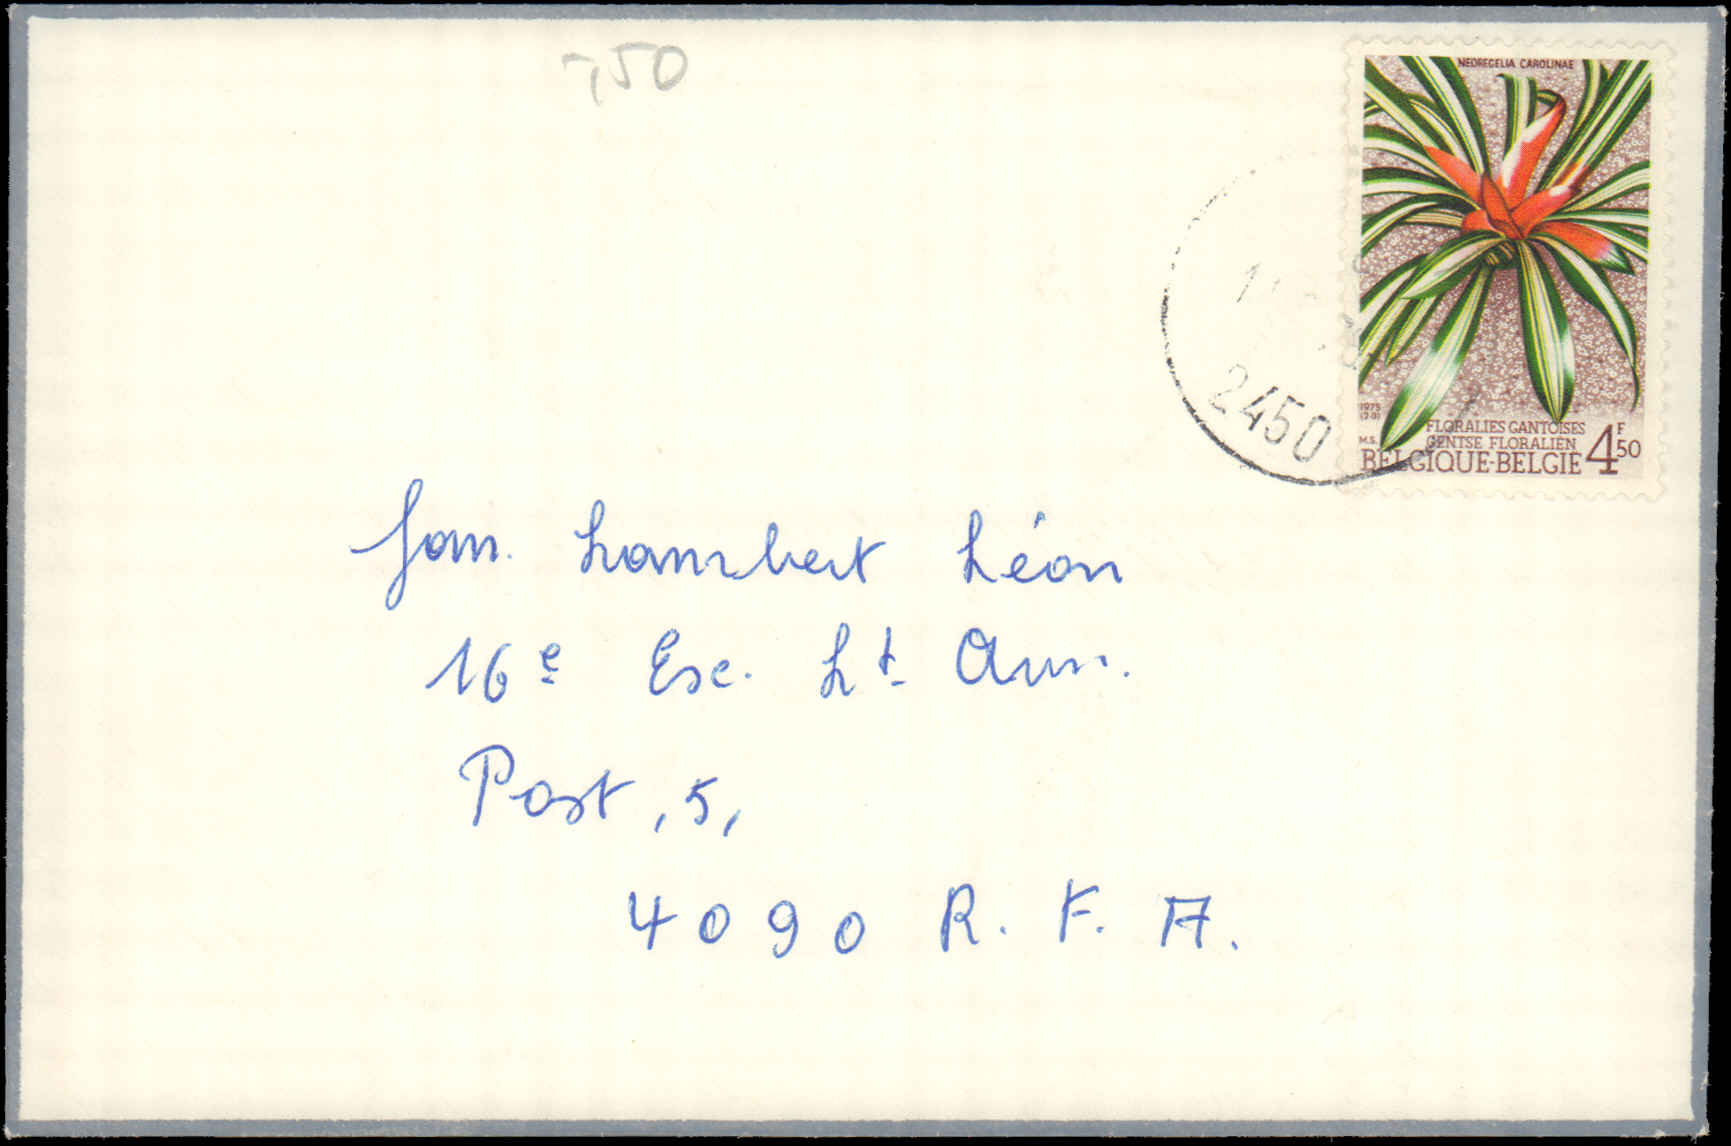 -,50
NEOREGELIA CAROLINAE
2450
1975
(20)
M.S.
FLORALIES GANTOISES
GENTSE FLORALIËN
BELGIQUE-BELGIË 4F50
Fam. Lambert Léon
16e Esc. Lt Avn.
Post, 5,
4090 R. F. A.